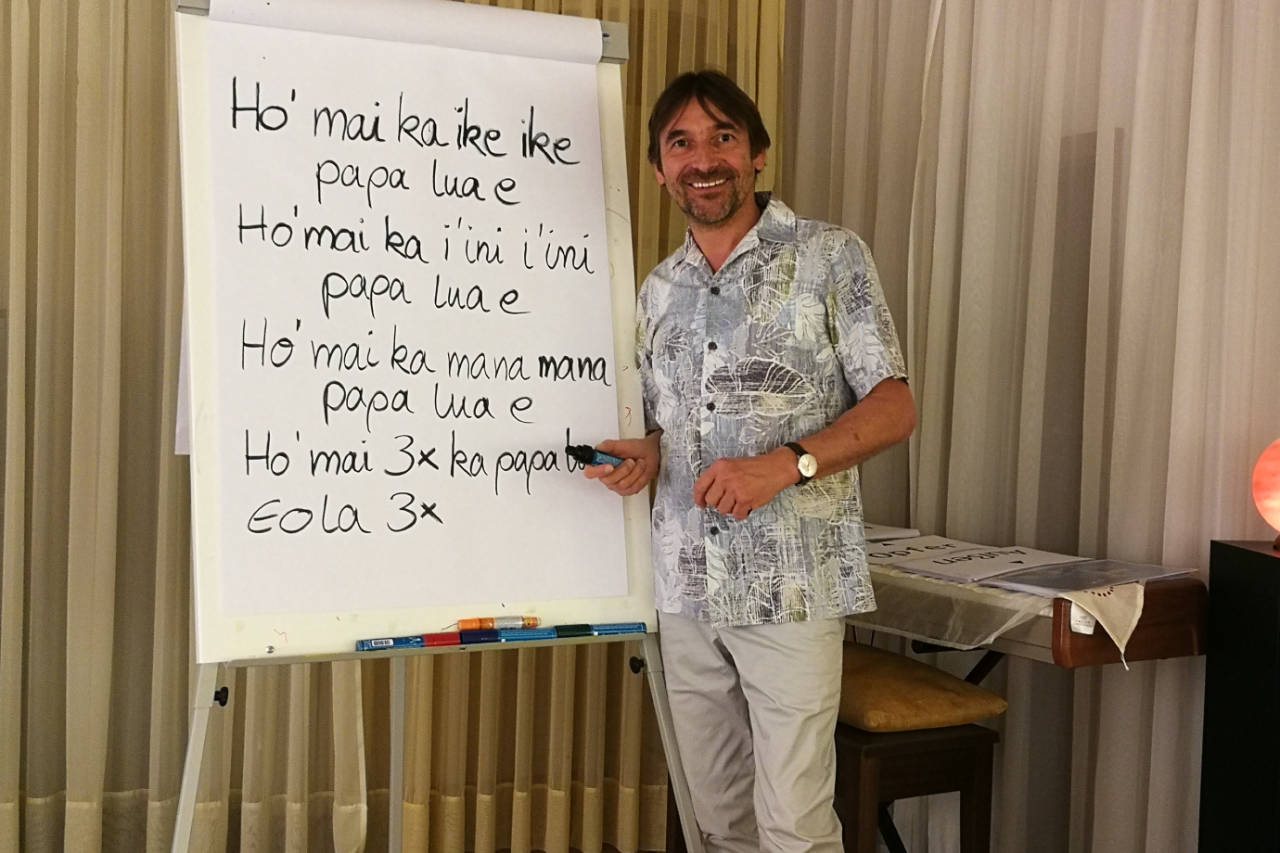 Ho' mai ka ike ike
papa lua e
Ho'mai ka i'ini i'ini
papa lua e
Ho' mai ka mana mana
papa lua e
Ho' mai 3x ka papa
Eola 3x
Außen